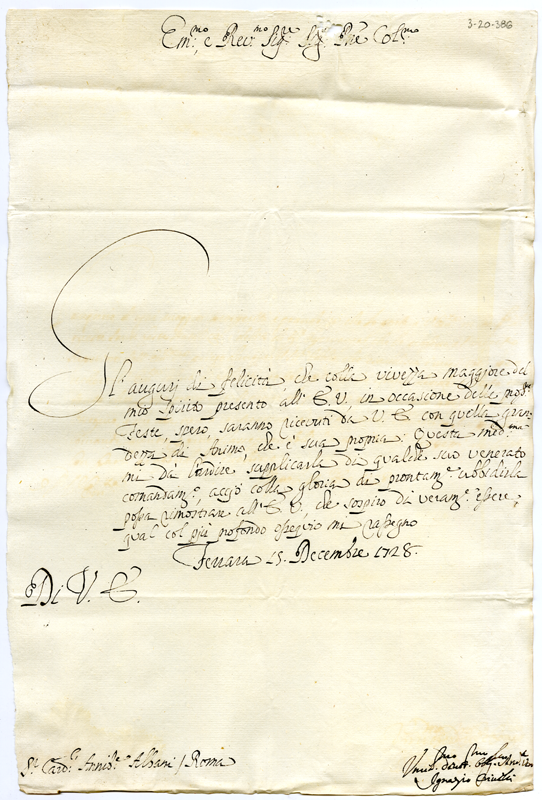 3-20-386
Em.mo, e Rev.mo Sig.re Sig.re Pñe Col.mo
Gl'augurj di felicità, che colla vivezza maggiore del
mio spirito presento all'E.V. in occasione delle
Feste, spero, saranno ricevuti da V. E. con quella gran=
dezza di Animo, che è sua propria: Questa med.ma
mi dà l'ardire supplicarla di qualche suo venerato
comandam.to, acciò colla gloria di prontam.te ubbidirla
possa rimostrare all'E.V., che sospiro di veram.te essere,
qual col più profondo ossequio mi rassegno
Ferrara 15. Decembre 1728.
Di V. E.
S.r Card.l Annib.e Albani / Roma
Ignazio